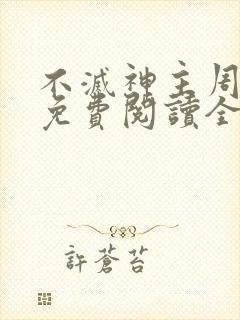 不滅神主周
免費閱讀全
許蒼苔